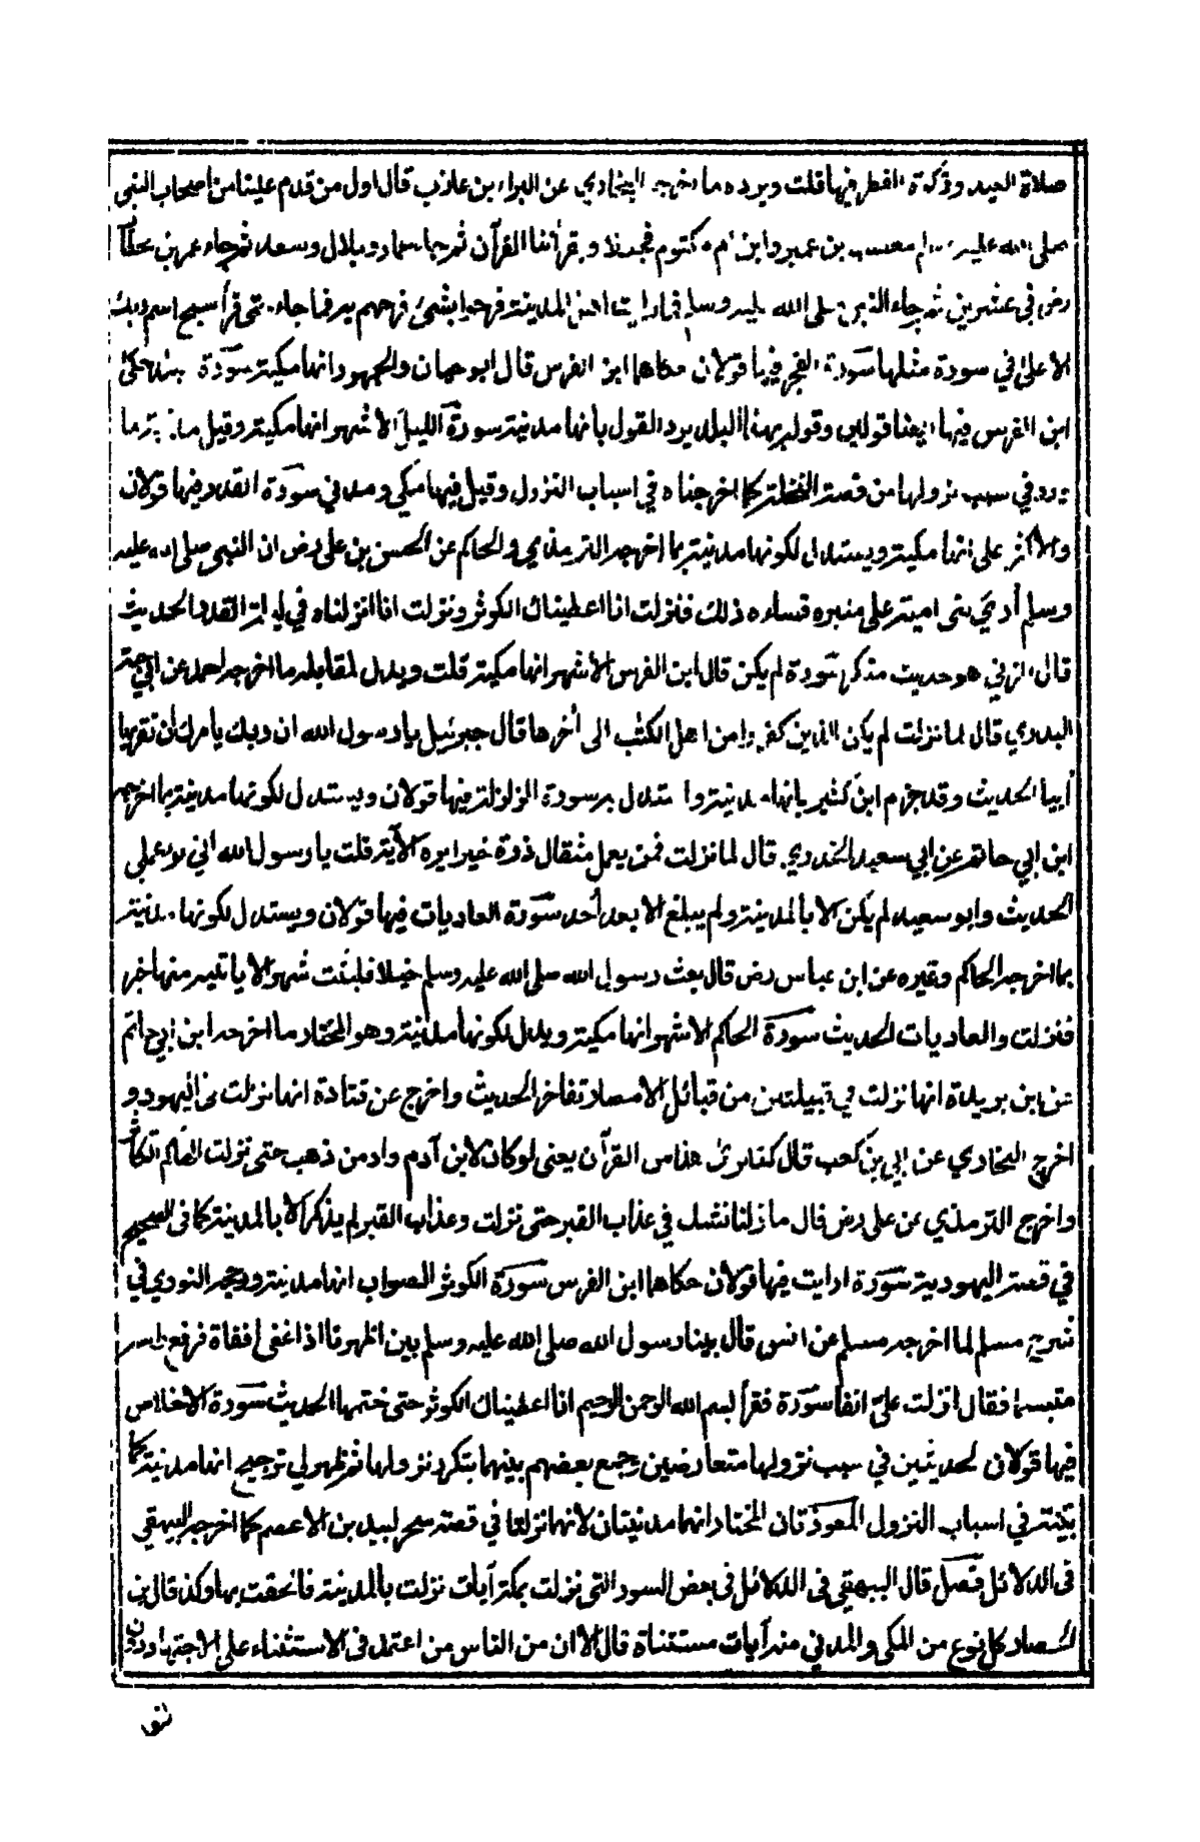 صلاة العيد وزكوة الفطر فيها قلت ويرده ما اخرجه البخاري عن البراء بن عازب قال اول من قدم علينا من اصحاب النبي
صلى الله عليه وسلم مصعب بن عمير وابن ام مكتوم فجعلا وبقرأننا القرآن ثم جاء عمار وبلال وسعد ثم جاء عمر بن خطاب
رض في عشرين ثم جاء النبي صلى الله عليه وسلم فما رايت اهل المدينة فرحوا بشئ فرحهم به فما جاء حتى قرأ سبح اسم ربك
الاعلى في سورة مثلها سورة الفجر فيها قولان حكاهما ابن الفرس قال ابو حيان والجمهور انها مكية سورة بلد حكى
ابن الفرس فيها ايضا قولين وقوله بهذا البلد يرد القول بأنها مدنية سورة الليل الاشهر انها مكية وقيل مدنية لما
ورد في سبب نزولها من قصة النخلة كما اخرجناه في اسباب النزول وقيل فيها مكي ومدني سورة القدر فيها قولان
والاكثر على انها مكية ويستدل لكونها مدنية بما اخرجه الترمذي والحاكم عن الحسن بن علي رض ان النبي صلى الله عليه
وسلم أري بنى امية على منبره فساءه ذلك فنزلت انا اعطيناك الكوثر ونزلت انا انزلناه في ليلة القدر الحديث
قال المزني هو حديث منكر سورة لم يكن قال ابن الفرس الأشهر انها مكية قلت ويدل لمقابله ما اخرجه احمد عن ابي حبة
البدري قال لما نزلت لم يكن الذين كفروا من اهل الكتب الى أخرها قال جبرئيل يا رسول الله ان ربك يأمرك أن تقرئها
أبيا الحديث وقد جزم ابن كثير بانها مدنية واستدل به سورة الزلزلة فيها قولان ويستدل لكونها مدنية بما اخرجه
ابن ابي حاتم عن ابي سعيد الخدري قال لما نزلت فمن يعمل مثقال ذرة خيرا يره الآية قلت يا رسول الله اني لراء عملي
الحديث وابو سعيد لم يكن الا بالمدينة ولم يبلغ الا بعد أحد سورة العاديات فيها قولان ويستدل لكونها مدنية
بما اخرجه الحاكم وغيره عن ابن عباس رض قال بعث رسول الله صلى الله عليه وسلم خيلا فلبثت شهرا لا ياتيه منها خبر
فنزلت والعاديات الحديث سورة الهاكم الاشهر انها مكية ويدل لكونها مدنية وهو المختار ما اخرجه ابن ابي حاتم
عن ابن بريدة انها نزلت في قبيلتين من قبائل الامصار تفاخر الحديث واخرج عن قتادة انها نزلت فى اليهود و
اخرج البخاري عن ابي بن كعب قال كنا نرى هذا من القرآن يعنى لو كان لابن آدم واد من ذهب حتى نزلت الهاكم التكاثر
واخرج الترمذي عن علي رض قال ما زلنا نشك في عذاب القبر حتى نزلت وعذاب القبر لم يذكر الا بالمدينة كما في الصحيح
في قصة اليهودية سورة ارايت فيها قولان حكاهما ابن الفرس سورة الكوثر الصواب انها مدنية ورجحه النووي في
شرح مسلم لما اخرجه مسلم عن انس قال بينا رسول الله صلى الله عليه وسلم بين اظهرنا اذ اغفى اغفاة فرفع راسه
متبسما فقال انزلت علي انفا سورة فقرأ بسم الله الرحمن الرحيم انا اعطيناك الكوثر حتى ختمها الحديث سورة الاخلاص
فيها قولان لحديثين في سبب نزولها متعارضين وجمع بعضهم بينهما بتكرر نزولها ثم ظهر لي ترجيح انها مدنية كما
بينته في اسباب النزول المعوذتان المختار انهما مدنيتان لانهما نزلتا في قصة سحر لبيد بن الاعصم كما اخرجه البيهقي
فى الدلائل فصل قال البيهقي فى الدلائل فى بعض السور التى نزلت بمكة آيات نزلت بالمدينة فالحقت بها وكذا قال ابن
الحصار كل نوع من المكي والمدني منه آيات مستثناة قال الا ان من الناس من اعتمد فى الاستثناء على الاجتهاد دون